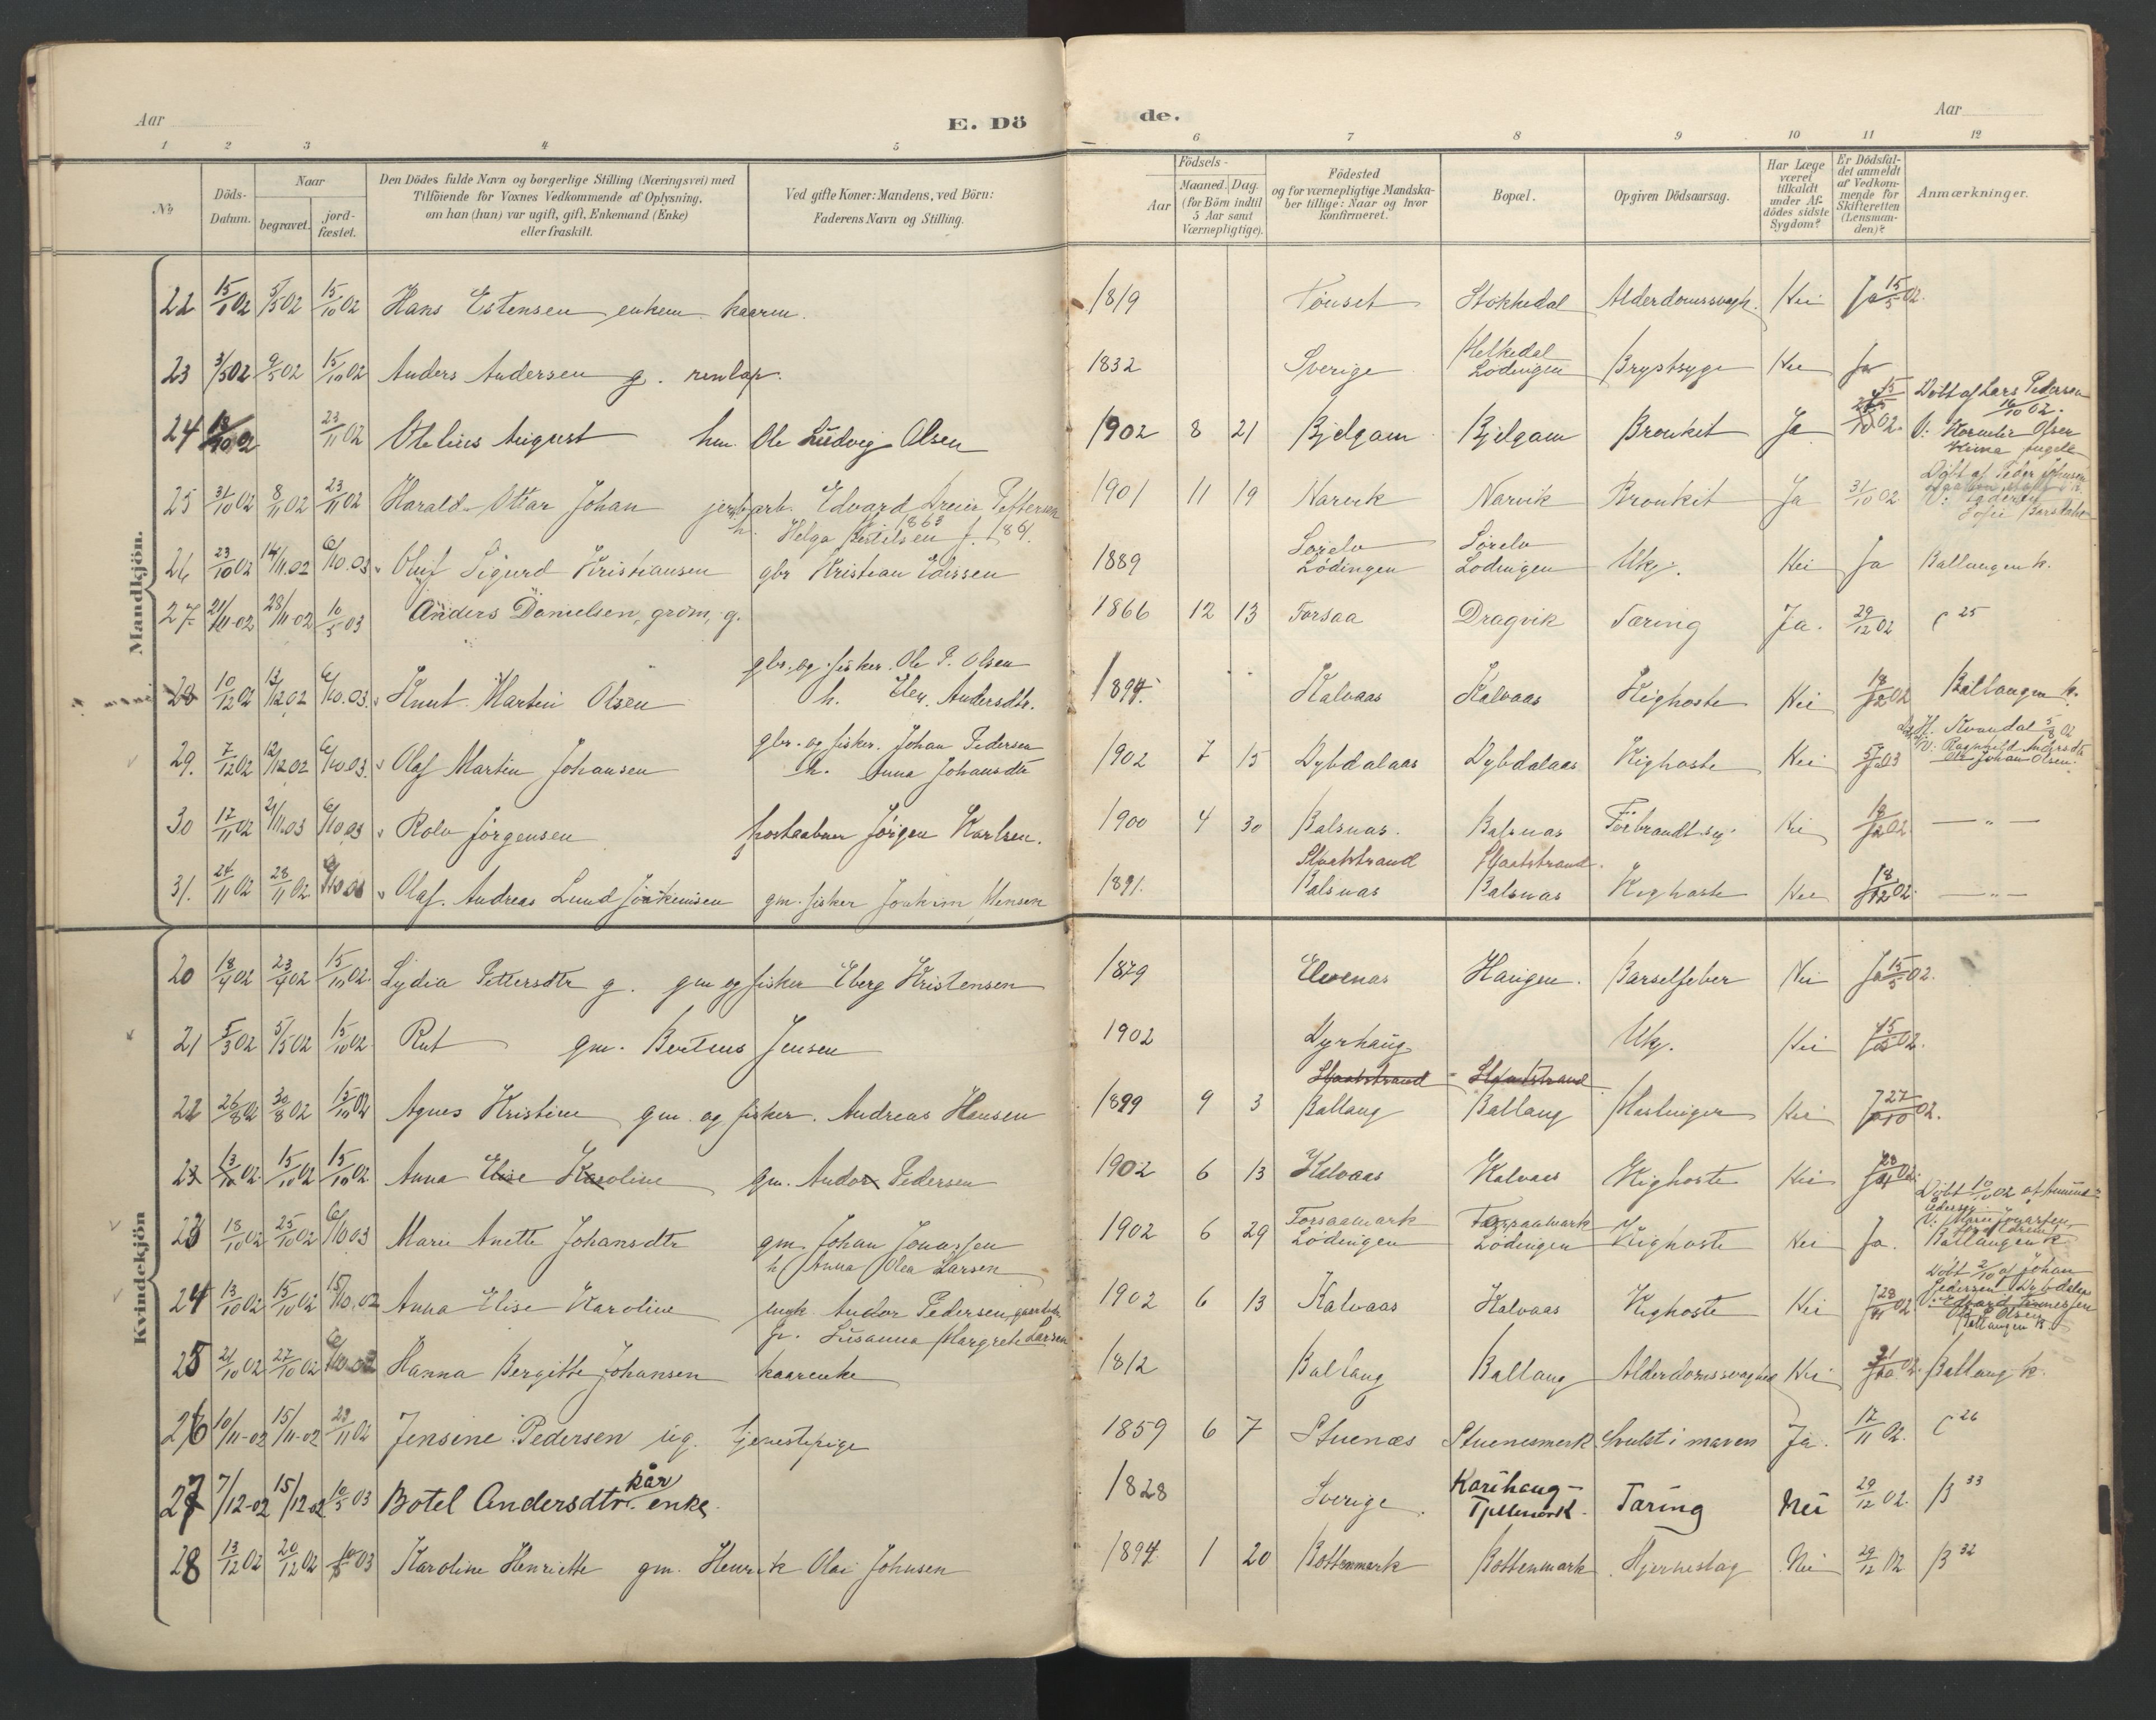 Aar
E. Dö
de.
Aar
1 2 3 4 5 6 7 8 9 10 11 12
No
Döds-Datum.
Naar
begravet.
jord-fæstet.
Den Dödes fulde Navn og borgerlige Stilling (Næringsvei) med
Tilföiende for Voxnes Vedkommende af Oplysning,
om han (hun) var ugift, gift, Enkemand (Enke)
eller fraskilt.
Ved gifte Koner: Mandens, ved Börn:
Faderens Navn og Stilling.
Födsels-
Aar
Maaned. Dag.
(for Börn indtil
5 Aar samt
Værnepligtige).
Födested
og for værnepligtige Mandska-
ber tillige: Naar og hvor
konfirmeret.
Bopæl.
Opgiven Dödsaarsag.
Har Læge
været
tilkaldt
under Af-
dödes sidste
Sygdom?
Er Dödsfal-
det anmeldt
af Vedkom-
mende for
Skifteretten
(Lensman-
den)?
Anmærkninger.
Mandkjön.
22 15/1 02 5/5 02 15/10 02 Hans Estensen enkem. kaarm. 1819 Tönset Stokkedal Alderdomssvagh. Nei Ja 15/5 02.
23 3/5 02 9/5 02 15/10 02 Anders Andersen g. renlap. 1832 Sverige Melkedal Lödingen Brystsyge Nei Ja
24 12/10 02 23/11 02 Otelius August hm. Ole Ludvig Olsen 1902 8 21 Bjelgam Bjelgam Bronkit Ja 02. Döbt af Lars Pedersen 16/10 02.
25 31/10 02 8/11 02 23/11 02 Harald Ottar Johan jernb.arb. Edvard Dreier Pettersen 1901 11 19 Narvik Narvik Bronkit Ja 31/10 02
h. Helga Bertilsen f. 1861.
26 23/10 02 14/11.02 6/10.03 Oluf Sigurd Kristiansen gbr Kristian Edissen 1889 Lødingen Lødingen Ukj. Nei Ja Ballangen k.
27 21/11-02 28/11-02 10/5 03 Anders Danielsen, grdm, g. 1866 12 13 Forsaa Dragvik Tæring Ja. 29/12 02 C 25
28 10/12 02 13/12 02 6/10.03. Knut Martin Olsen gbr. og fisker. Ole P. Olsen 1894. Kalvaas Kalvaas Kighoste Nei 18/12 02 Ballangen k.
h. Elen Andersdtr.
29. 7/12 02 12/12 02 6/10 03. Olaf Martin Johansen gbr. og fisker. Johan Pedersen 1902 7 15 Dybdalaas Dybdalaas Kighoste Nei
h. Anna Johansdtr
30 17/11 02 21/11.03 6/10 03 Rolv Jörgensen postaabner Jörgen Karlsen. 1900 4 30 Balsnas. Balsnas Forbrandt sig. Nei 18/12 02 — " —
31. 24/11 02 28/11 02. 6/10 03 Olaf. Andreas Lund Joakimsen gm. fisker Joakim Mensen 1891. Staatstrand Balsnas Staatstrand. Balsnas Kighoste Nei 18/12 02. — " —
Kvindekjön
20 18/4 02 23/4 02 15/10 02. Lydia Pettersdtr g. gm og fisker Eberg Kristensen 1879 Elvenas Haugen. Barselfeber Nei Ja 15/5 02.
21 5/3 02 5/5 02 15/10 02 Rut gm. Berteus Jensen 1902 Dyrhaug Ukj. Nei Ja 15/5 02.
22 26/8 02 30/8 02 15/10 02 Agnes Kristine gm. og fisker. Andreas Hansen 1899 9 3 Staatstrand Ballang Staatstrand Ballang Mæslinger Nei Ja 27/10 02.
23 13/10 02. 15/10 02 15/10 02. Anna Elise Karoline gm. Andor Pedersen 1902 6 13 Kalvaas Kalvaas Kighoste Nei
23 18/10 02 25/10 02 6/10 03 Marie Anette Johansdtr gm. Johan Jonassen 1902 6 29 Forsaamark Lödingen Forsaamark Lödingen Kighoste Nei Ja. Ballangen k
h Anna Olea Larsen
24 13/10 02 15/10 02 15/10.02 Anna Elise Karoline Andor Pedersen 1902 6 13 Kalvaas Kalvaas Kighoste Nei Ja 28/11 02. Ballangen k
Susanna Margrete Larsen
25 21/10 02 27/10 02 Hanna Bergitte Johansen kaarenke 1812 Ballang Ballang Alderdomssvaghed Nei Ballang k.
26 10/11-02 15/11-02 23/11 02 Jensine Pedersen ug. tjenestepige 1859 6 7 Stuenæs Stuenesmark Svulst i maven Ja. 17/11 02. C 26
27 7/12-02 15/12-02 10/5 03 Botel Andersdtr. kår enke. 1828 Sverige. Karihaug- Tjellmark. Taring Nei 29/12 02. B 33
28 13/12 02 20/12 02 10/5 03 Karoline Henriette gm. Henrik Olai Johnsen 1894 1 20 Bottenmark Bottenmark Hjerneslag Nei 29/12 02 B 32